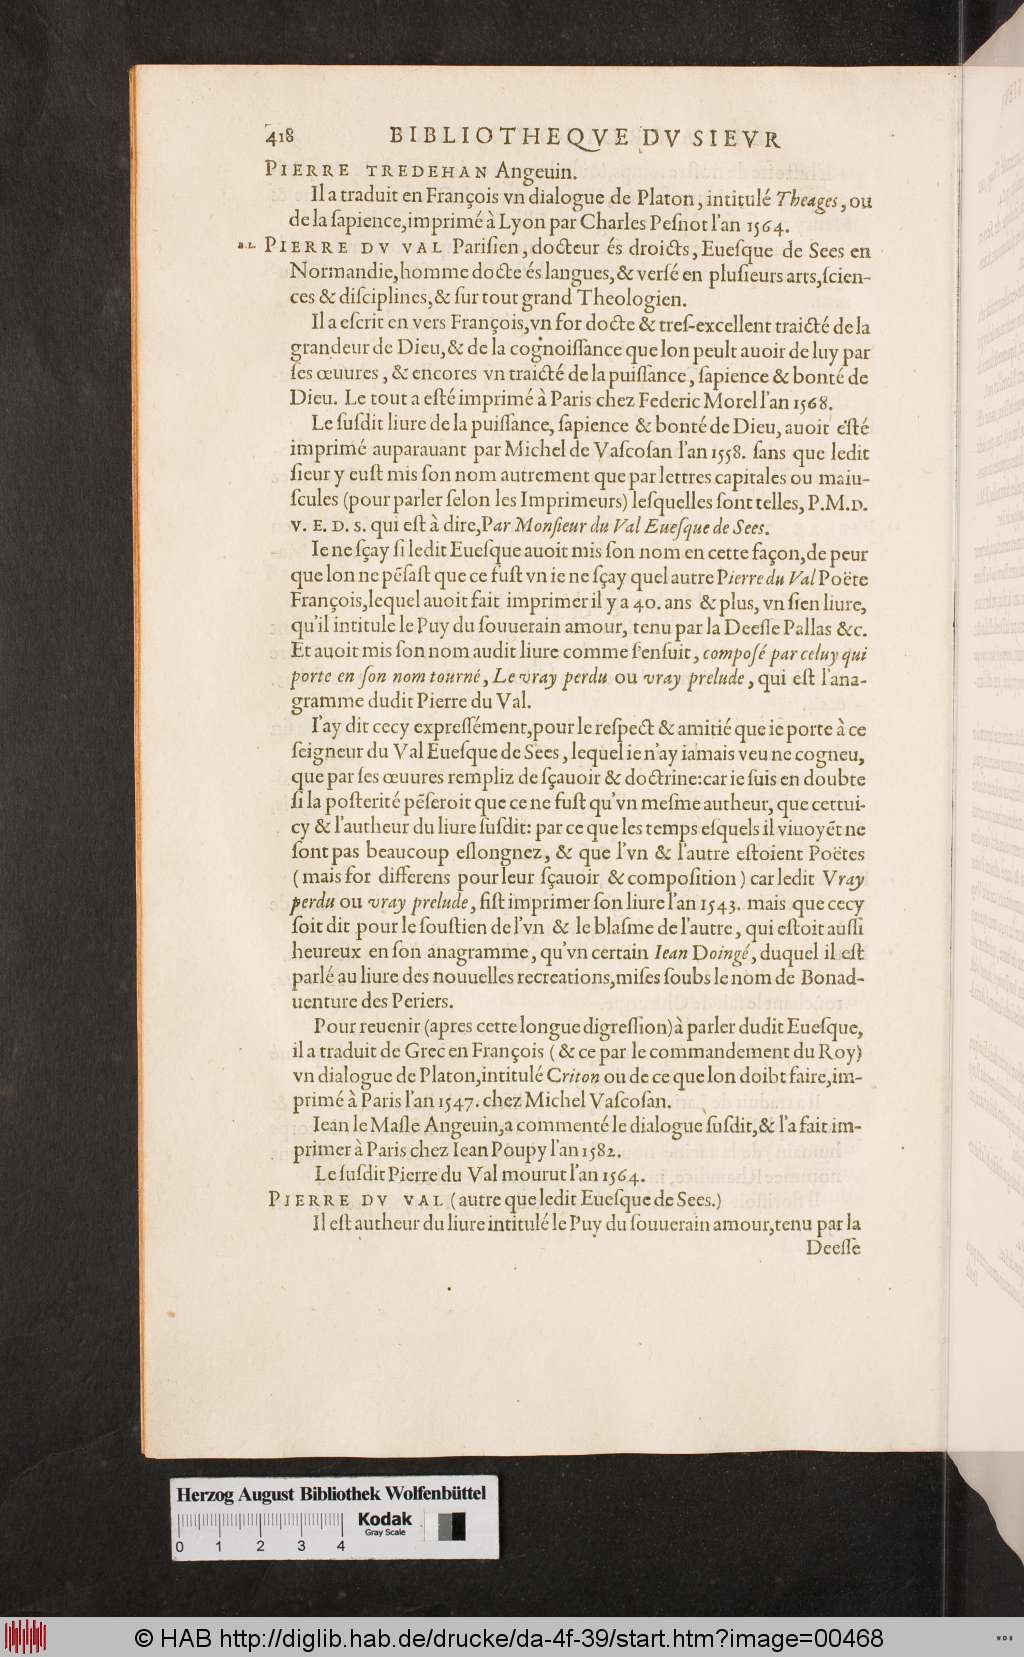 418 BIBLIOTHEQVE DV SIEVR
PIERRE TREDEHAN Angeuin.
Il a traduit en François vn dialogue de Platon, intitulé Theages, ou
de la ſapience, imprimé à Lyon par Charles Peſnot l'an 1564.
B.L. PIERRE DV VAL Pariſien, docteur és droicts, Eueſque de Sees en
Normandie, homme docte és langues, & verſé en pluſieurs arts, ſcien-
ces & diſciplines, & ſur tout grand Theologien.
Il a eſcrit en vers François, vn for docte & treſ-excellent traicté de la
grandeur de Dieu, & de la cognoiſſance que lon peult auoir de luy par
ſes œuures, & encores vn traicté de la puiſſance, ſapience & bonté de
Dieu. Le tout a eſté imprimé à Paris chez Federic Morel l'an 1568.
Le ſuſdit liure de la puiſſance, ſapience & bonté de Dieu, auoit eſté
imprimé auparauant par Michel de Vaſcoſan l'an 1558. ſans que ledit
ſieur y euſt mis ſon nom autrement que par lettres capitales ou maiu-
ſcules (pour parler ſelon les Imprimeurs) leſquelles ſont telles, P.M.D.
V. E. D. S. qui eſt à dire, Par Monſieur du Val Eueſque de Sees.
Ie ne ſçay ſi ledit Eueſque auoit mis ſon nom en cette façon, de peur
que lon ne pẽſaſt que ce fuſt vn ie ne ſçay quel autre Pierre du Val Poëte
François, lequel auoit fait imprimer il y a 40. ans & plus, vn ſien liure,
qu'il intitule le Puy du ſouuerain amour, tenu par la Deeſſe Pallas &c.
Et auoit mis ſon nom audit liure comme ſ'enſuit, compoſé par celuy qui
porte en ſon nom tourné, Le vray perdu ou vray prelude, qui eſt l'ana-
gramme dudit Pierre du Val.
I'ay dit cecy expreſſément, pour le reſpect & amitié que ie porte à ce
ſeigneur du Val Eueſque de Sees, lequel ie n'ay iamais veu ne cogneu,
que par ſes œuures rempliz de ſçauoir & doctrine: car ie ſuis en doubte
ſi la poſterité pẽſeroit que ce ne fuſt qu'vn meſme autheur, que cettui-
cy & l'autheur du liure ſuſdit: par ce que les temps eſquels il viuoyẽt ne
ſont pas beaucoup eſlongnez, & que l'vn & l'autre eſtoient Poëtes
(mais for differens pour leur ſçauoir & compoſition) car ledit Vray
perdu ou vray prelude, fiſt imprimer ſon liure l'an 1543. mais que cecy
ſoit dit pour le ſouſtien de l'vn & le blaſme de l'autre, qui eſtoit auſſi
heureux en ſon anagramme, qu'vn certain Iean Doingé, duquel il eſt
parlé au liure des nouuelles recreations, miſes ſoubs le nom de Bonad-
uenture des Periers.
Pour reuenir (apres cette longue digreſſion) à parler dudit Eueſque,
il a traduit de Grec en François (& ce par le commandement du Roy)
vn dialogue de Platon, intitulé Criton ou de ce que lon doibt faire, im-
primé à Paris l'an 1547. chez Michel Vaſcoſan.
Iean le Maſle Angeuin, a commenté le dialogue ſuſdit, & l'a fait im-
primer à Paris chez Iean Poupy l'an 1582.
Le ſuſdit Pierre du Val mourut l'an 1564.
PIERRE DV VAL (autre que ledit Eueſque de Sees.)
Il eſt autheur du liure intitulé le Puy du ſouuerain amour, tenu par la
Deeſſe
Herzog August Bibliothek Wolfenbüttel
0 1 2 3 4
Kodak
Gray Scale
© HAB http://diglib.hab.de/drucke/da-4f-39/start.htm?image=00468